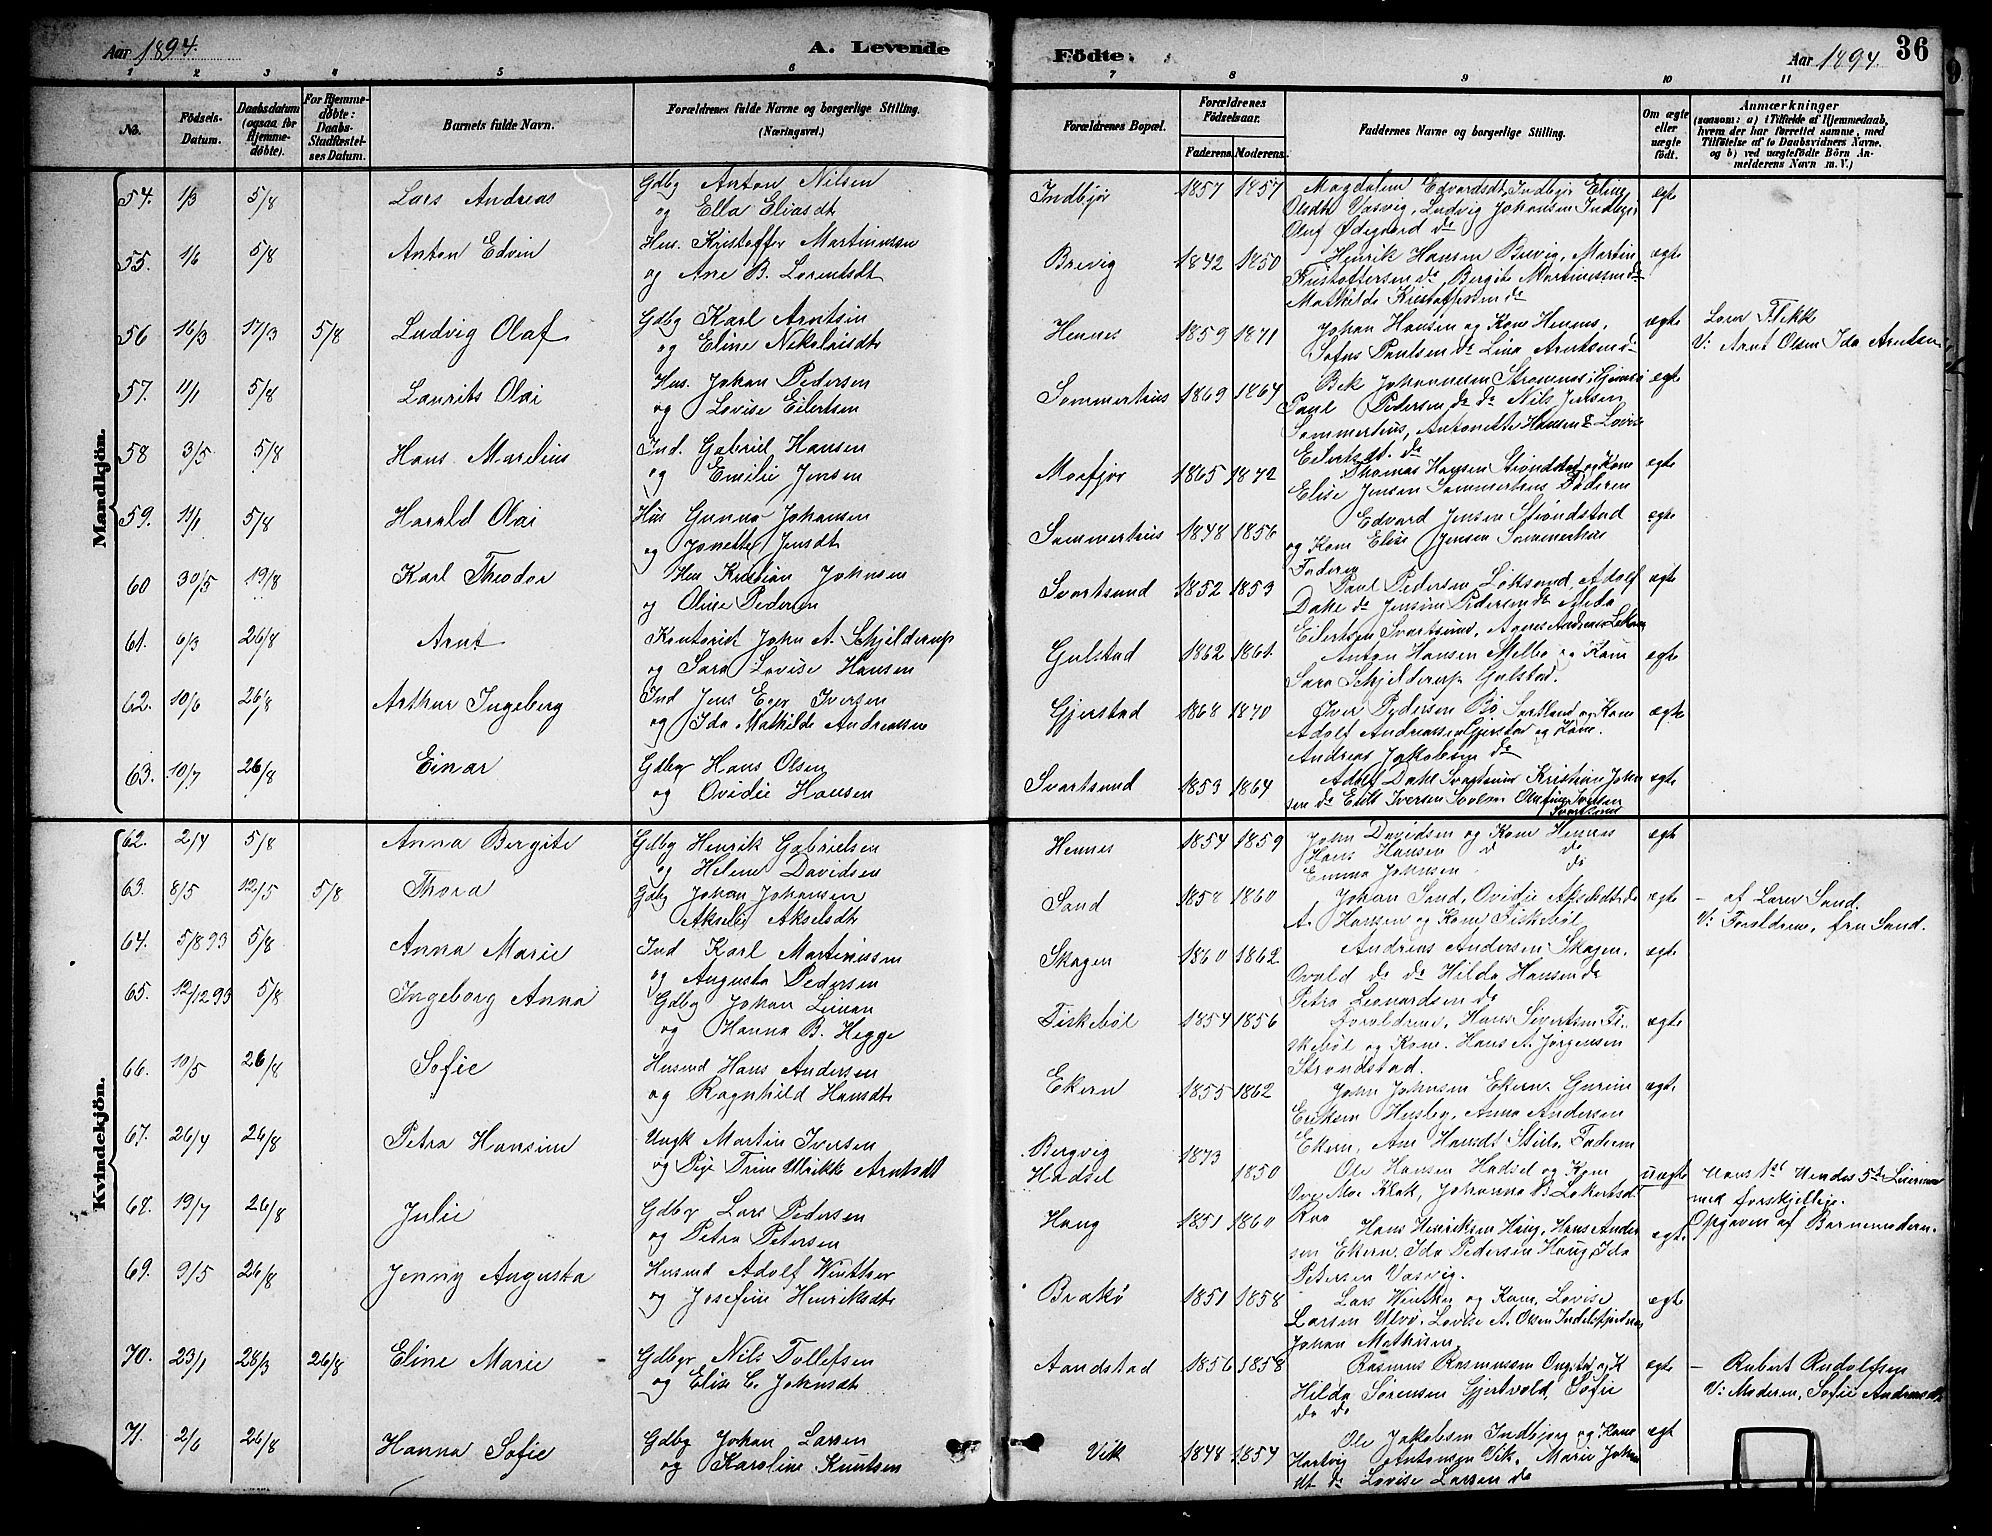 Aar 1894.
A. Levende
Födte.
Aar 1894.
36
1 2 3 4 5 6 7 8 9 10 11
No.
Födsels-Datum.
Daabsdatum (ogsaa for Hjemme-döbte).
For Hjemme-döbte: Daabs-Stadfæstel-ses Datum.
Barnets fulde Navn.
Forældrenes fulde Navne og borgerlige Stilling. (Næringsvei.)
Forældrenes Bopæl.
Forældrenes Födselsaar.
Faderens. Moderens.
Faddernes Navne og borgerlige Stilling.
Om ægte eller uægte födt.
Anmærkninger
(saasom: a) i Tilfælde af Hjemmedaab, hvem der har forrettet samme, med Tilföielse af to Daabsvidners Navne, og b) ved uægtefödte Börn An-melderens Navn m. V.)
Mandkjön.
54. 1/3 5/8 Lars Andreas Gdbg Anton Nilsen
og Ella Eliasdt
Indbjör 1857 1857 Magdalem Edvardsdt, Indbjör Eling
Olsdt Vasvig, Ludvig Johansen Indbjör
Oluf Ödegaard do
ægte
55. 1/6 5/8 Anton Edvin Hus. Kristoffer Martinussen
og Ane B. Lorentsdt
Brevig 1842 1850 Henrik Hansen Brevig, Martin
Kristoffersen do, Bergite Martinussen do
Mathilde Kristoffersen do
ægte
56 16/3 17/3 5/8 Ludvig Olaf Gdbg Karl Arntsen
og Eline Nikolaisdt
Hennes 1859 1871 Johan Hansen og Kone Hennes,
Sofus Paulsen do Lina Arntsen do
ægte
Lærer Flekk
V: Arnt Olsen Ida Arntsen
57. 11/1 5/8 Laurits Olai Hus. Johan Pedersen
og Lovise Eilertsen
Sommerhus 1869 1864 Bek Johannesen Strömnes,
Paul Pedersen do do Nils Jensen
Sommerhus, Antonette Hansen & Lovise
Eilertsdt. do
ægte
58 3/5 5/8 Hans Marelius Ind. Gabriel Hansen
og Emilie Jensen
Morfjör 1865 1872 Thomas Hansen Strondstad og Kone
Elise Jensen Sommerhus Faderen
ægte
59. 14/1 5/8 Harald Olai Hus Gunnar Johansen
og Jonette Jensdt
Sommerhus 1848 1856 Edvard Jensen Strondstad
og Kone Elise Jensen Sommerhus
Faderen
ægte
60 30/5 19/8 Karl Theodor Hus Kristian Johnsen
og Oline Pedersen
Svartsund 1852 1853 Paul Pedersen Löksund, Adolf
Dahl do Jensine Pedersen do Alida
Eilertsen Svartsund, Agnes Andersen
ægte
61. 6/3 26/8 Arnt Kontorist John A. Schjelderup
og Sara Lovise Hansen
Gulstad 1862 1861. Anton Hansen Melbo og Kone
Sara Schjelderup Gulstad.
ægte
62. 10/6 26/8 Arthur Ingeberg Ind Jens Eger Iversen
og Ida Mathilde Andreassen
Gjerstad 1868 1870 Iver Pedersen Bö Sortland og Kone
Adolf Andreassen Gjerstad og Kone.
Andreas Jakobsen do
ægte
63. 10/7 26/8 Einar Gdbg Hans Olsen
og Ovidie Hansen
Svartsund 1853 1864 Adolf Dahl Svartsund Kristian John
sen do Iversen Olafine Iversen
Svartsund
ægte
Kvindekjön.
62. 2/4 5/8 Anna Bergite Gdbg Henrik Gabrielsen
og Helene Davidsen
Hennes 1854 1859 John Davidsen og Kone Hennes
Hans Hansen d do
Emma Johnsen do
ægt
63. 8/5 12/5 5/8 Thora Gdbg Johan Johansen
Akselsdt
Sand 1858 1860 Johan Sand, Ovidie Akselsdt do
A. Hansen og Kone Fiskeböl
ægte
– af Lærer Sand.
V: Forældrene, fru Sand.
64. 5/8 93 5/8 Anna Marie Ind Karl Martinussen
og Augusta Pedersen
Skagen 1860 1862 Andreas Andersen Skagen,
Ovald do do Hilda Hansen do
Petra Leonardsen do
ægte
65. 12/12 93 5/8 Ingeborg Anna Gdbg Johan Simon
og Hanna B. Hegge
Fiskeböl 1854 1856 Forældrene, Hans Sivertsen Fi-
skeböl og Kone. Hans A. Jörgensen
Strondstad.
ægte
66. 10/5 26/8 Sofie Husmd Hans Andersen
og Ragnhild Hansdt
Ekern 1855 1862 John Johnsen Ekern. Gurine
Eriksen Husby, Anna Andersen
Ekern, Ane Hansdt Stile, Faderen
ægte
67. 26/4 26/8 Petra Hansine Ungk Martin Iversen
og Pige Trine Ulrikke Arntsdt
Bergvig
Hadsel
1873 1850 Ole Hansen Hadsel og Kone
Ove Moe Klak, Johanna B Lokertsdt
Roo
uægte
Hans 1st Hendes 5te Leiermaal
med forskjellige.
Opgaven af Barnemoderen.
68. 19/7 26/8 Julie Gdbg Lars Pedersen
og Petra Petersen
Haug 1851 1860 Hans Henriksen Haug, Hans Ander
sen Ekern, Ida Pedersen Haug, Ida
Petersen Vasvig.
ægte
69. 9/5 26/8 Jenny Augusta Husmd Adolf Winther
og Josefine Henriksdt
Brakö 1851 1858 Lars Winther og Kone, Lovise
Larsen Ulvö, Lovise A. Olsen
Johan Mathisen
ægte
70. 23/1 28/3 26/8 Eline Marie Gdbgr Nils Tollefsen
og Elise C. Johnsdt
Aandstad 1856 1858 Rasmus Rasmussen Ongstad og K
Hilda Sörensen Gjertvold, Sofie
do do
ægte
– Rubert Rudolfsen
V: Moderen, Sofie Andersdt
71. 2/6 26/8 Hanna Sofie Gdbg Johan Larsen
og Karoline Knutsen
Vik 1848 1854 Ole Jakobsen Indbjörg og Kone
Hartvig Antonsen Vik, Marie John
dt do Lovise Larsen do
ægt